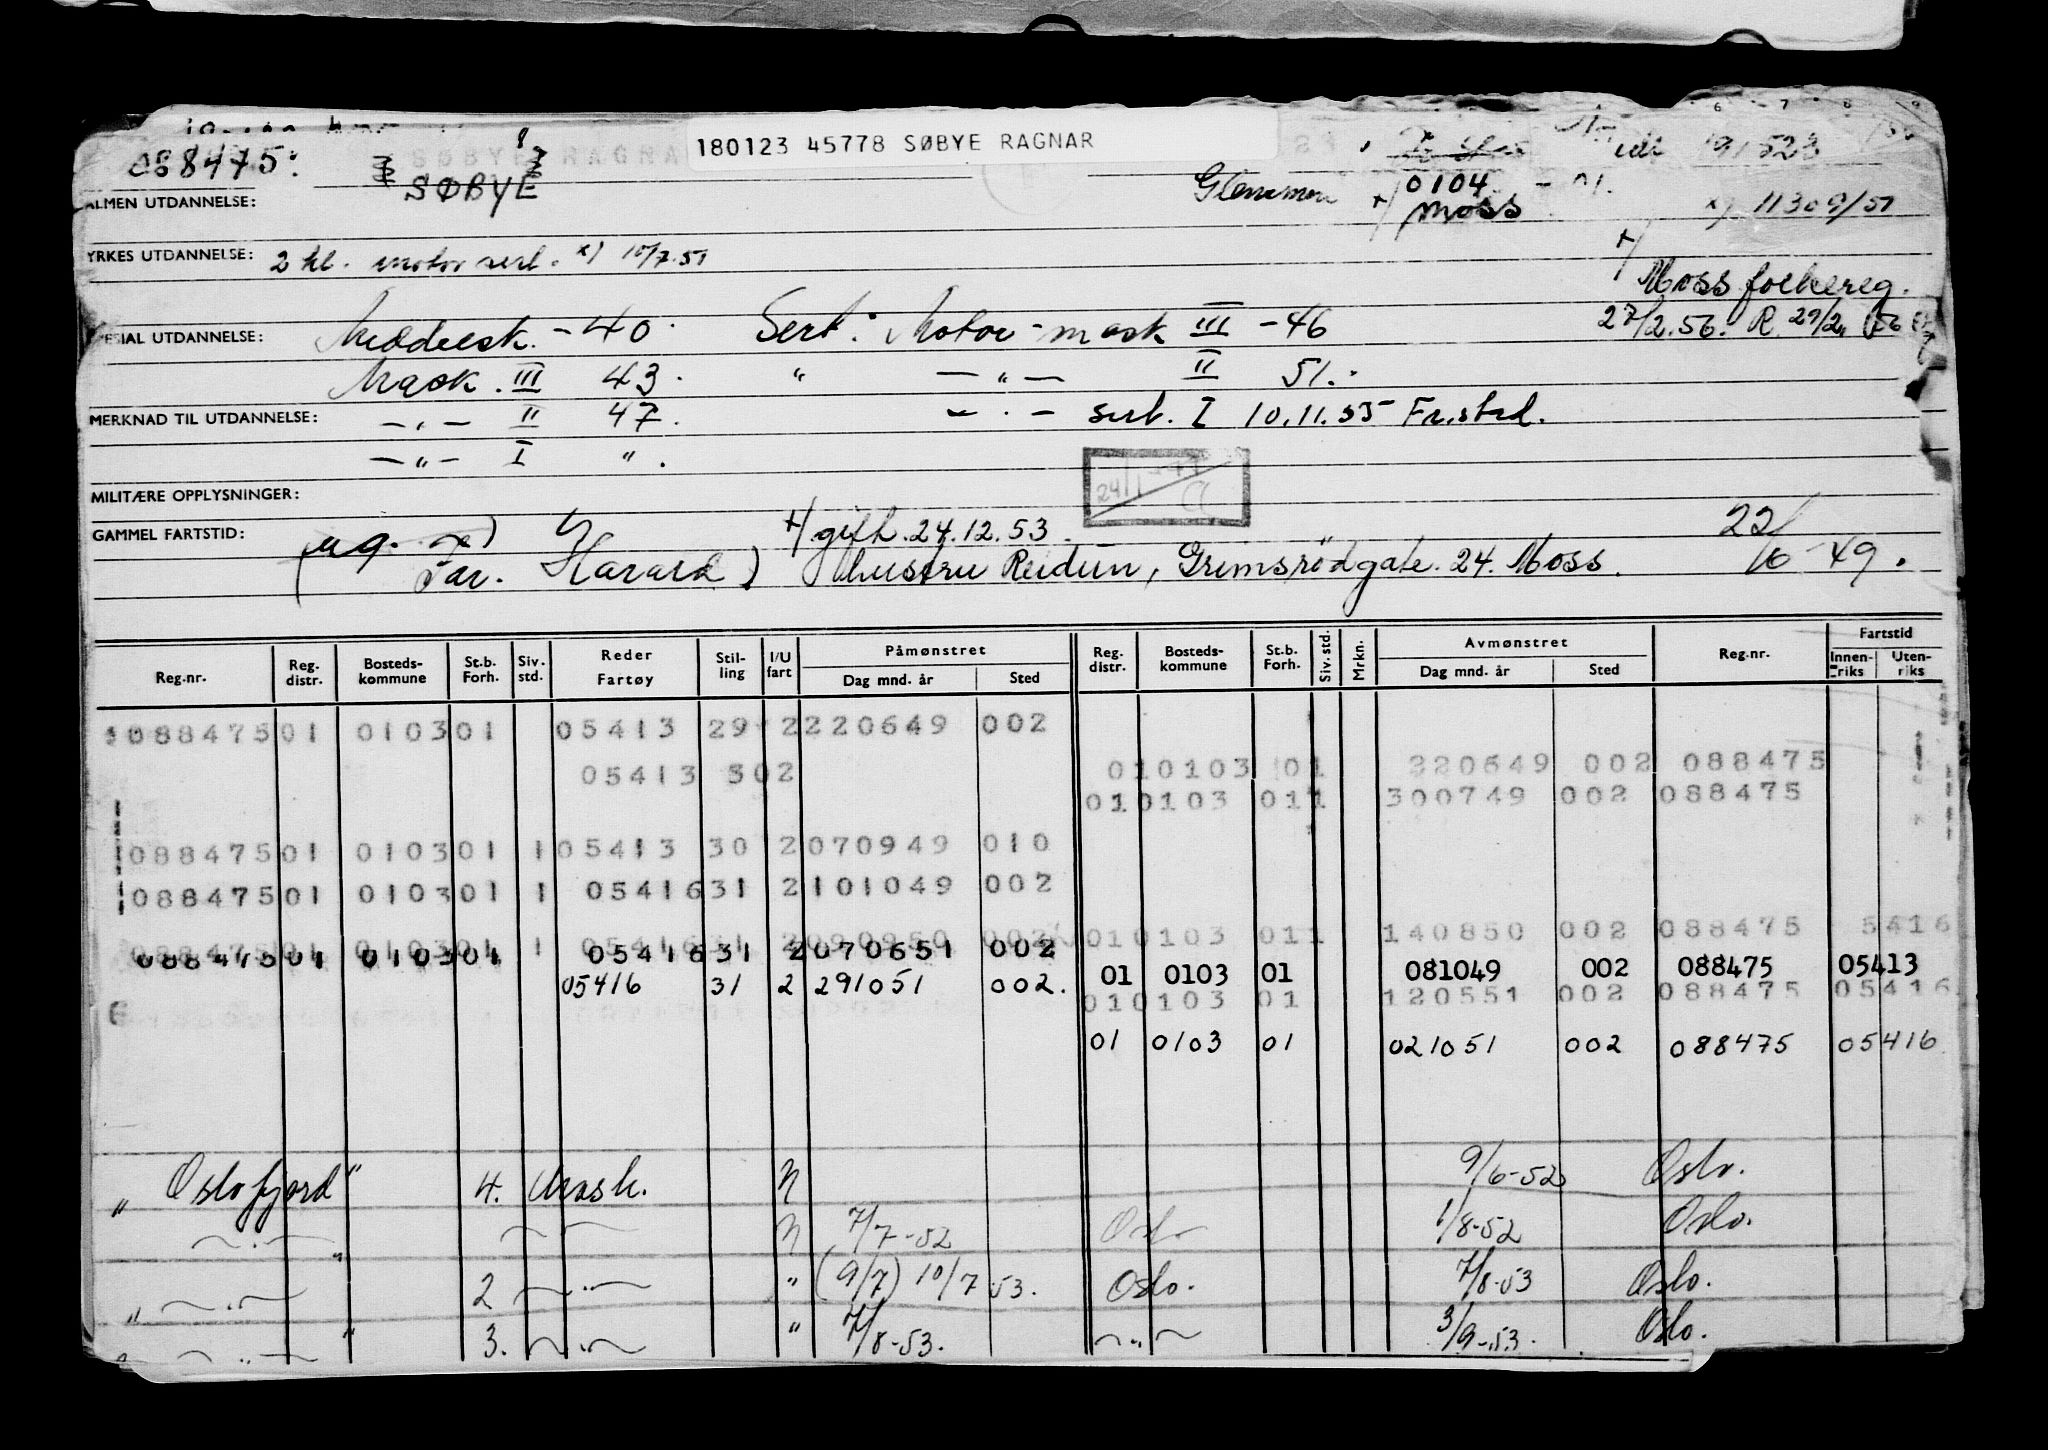 180123 45778 SØBYE RAGNAR
088475. SØBYE
Glemmen +) 0104 - 01.
Moss
ALMEN UTDANNELSE: x) 11309/51
YRKES UTDANNELSE: 2 kl. motor sert. x) 10/7.51
+) Moss folkereg.
27/2.56. R 29/2 56
SPESIAL UTDANNELSE: Middelsk. - 40. Sert: Motor-mask III - 46
Mask. III 43. " — " — II 51.
MERKNAD TIL UTDANNELSE: — " — II 47. — " — sert. I 10.11.55 Fr.stad.
— " — I " .
MILITÆRE OPPLYSNINGER:
GAMMEL FARTSTID: ug. x) +) gift. 24.12.53. 22/
(Far. Harald) hustru Reidun, Grimsrødgate. 24. Moss. 6-49.
Påmønstret Avmønstret Fartstid
Reg.nr. Reg. distr. Bosteds-kommune St.b. Forh. Siv. std. Reder Fartøy Stil-ling I/U fart Dag mnd. år Sted Reg. distr. Bosteds-kommune St.b. Forh. Siv. std. Mrkn. Dag mnd. år Sted Reg.nr. Innen-riks Uten-riks
088475 01 0103 01 05413 29 2 220649 002
05413 302 01 0103 01 220649 002 088475
01 0103 01 1 300749 002 088475
088475 01 0103 01 1 05413 30 2 070949 010
088475 01 0103 01 1 05416 31 2 101049 002
088475 01 0103 01 1 05416 31 2 090950 002 01 0103 01 1 140850 002 088475 5416
088475 01 0103 01 05416 31 2 070651 002
01 0103 01 081049 002 088475 05413
05416 31 2 291051 002. 01 0103 01 120551 002 088475 05416
01 0103 01 021051 002 088475 05416
"Oslofjord" 4. Mask. N 9/6-52 Oslo.
— " — — " — N 7/7-52 Oslo 1/8-52 Oslo.
" — " — " 2 — " — " (9/7) 10/7.53. Oslo. 7/8-53 Oslo.
" — " — " 3. — " — " 7/8-53. — " — 3/9-53. Oslo.